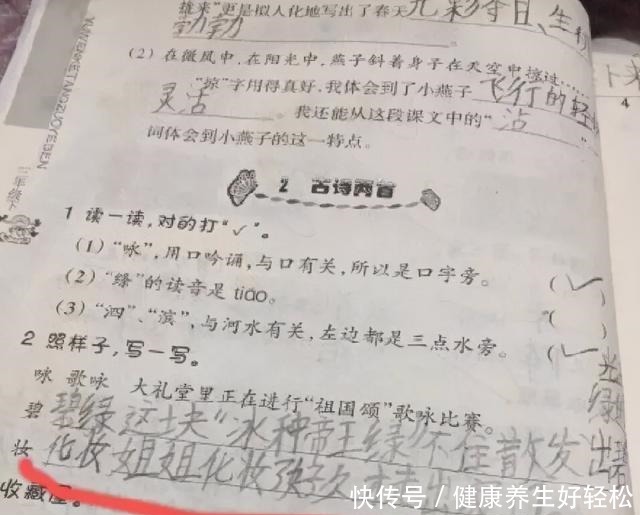 雄来”更是拟人化地写出了春天光彩夺目、生机
勃勃。
(2) 在微风中,在阳光中,燕子斜着身子在天空中掠过……
“掠”字用得真好,我体会到了小燕子飞行的轻
灵活。我还能从这段课文中的“沾”
词体会到小燕子的这一特点。
下来
4
三年级下
2 古诗两首
1 读一读,对的打“√”。
(1)“咏”,用口吟诵,与口有关,所以是口字旁。(√)
(2)“绦”的读音是 tiāo。( )
(3)“泗”、“滨”,与河水有关,左边都是三点水旁。(√
2 照样子,写一写。
咏 歌咏 大礼堂里正在进行“祖国颂”歌咏比赛。
碧 碧绿 这块“冰种帝王绿”不住散发出
光
绿
妆 化妆 姐姐化妆了好久
收藏屋。
快传号/健康养生好轻松